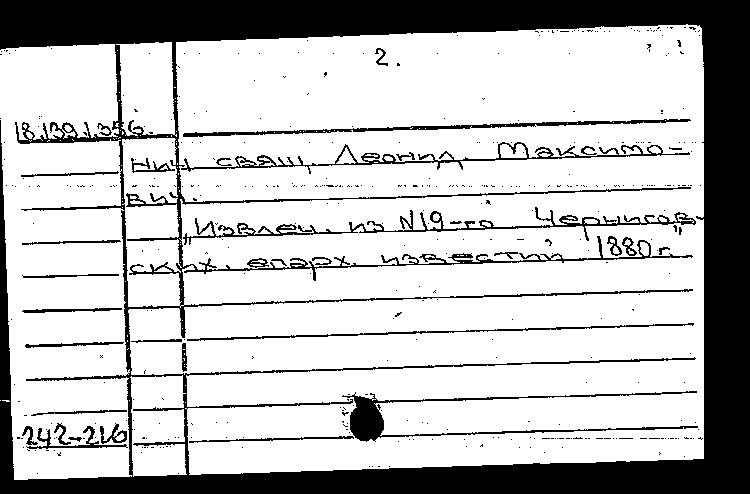 2.
18.139.1.356.
нин свящ. Леонид. Максимо-
вич.
„Извлеч. из N19-го Чернигов-
ских. епарх. известий 1880 г."
242-216